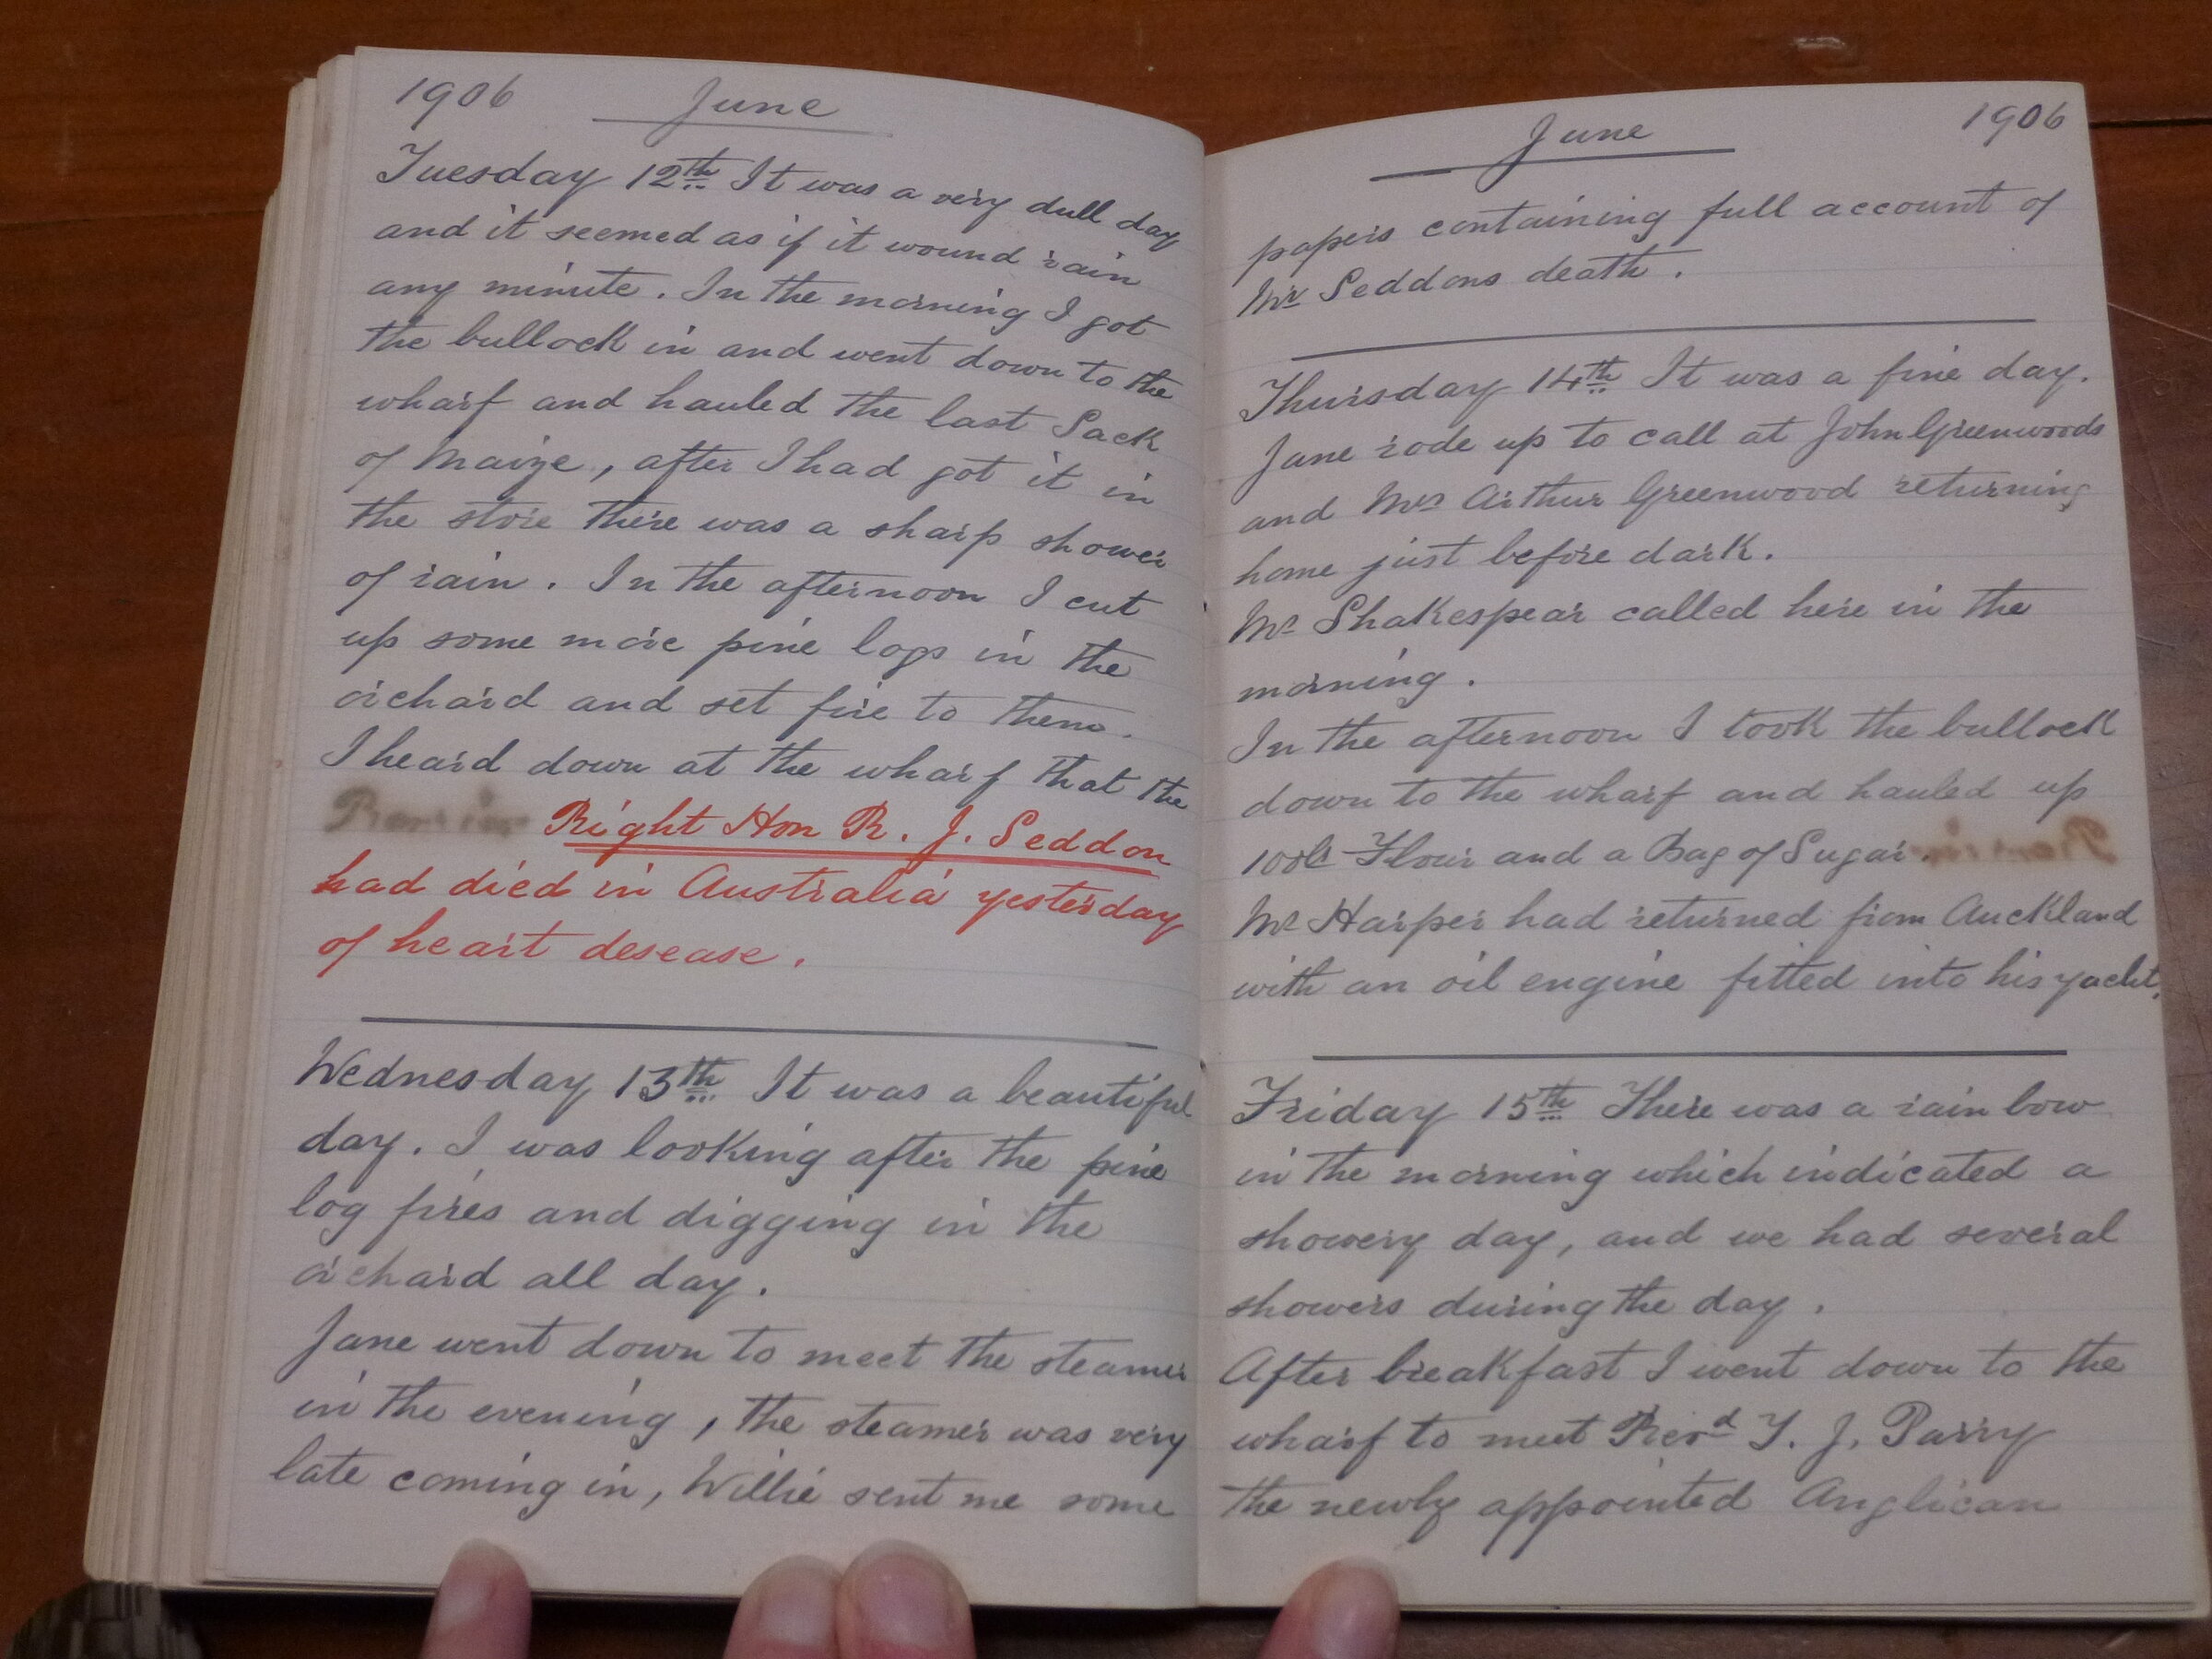 1906 June
Tuesday 12th It was a very dull day
and it seemed as if it wound rain
any minute. In the morning I got
the bullock in and went down to the
wharf and hauled the last Sack
of Maize, after I had got it in
the store there was a sharp shower
of rain. In the afternoon I cut
up some more pine logs in the
orchard and set fire to them.
I heard down at the wharf that the
Right Hon R. J. Seddon
had died in Australia yesterday
of heart desease.
Wednesday 13th It was a beautiful
day. I was looking after the pine
log fires and digging in the
orchard all day.
Jane went down to meet the steamer
in the evening, the steamer was very
late coming in, Willie sent me some
June 1906
papers containing full account of
Mr Seddons death.
Thursday 14th It was a fine day.
Jane rode up to call at John Greenwoods
and Mrs Arthur Greenwood returning
home just before dark.
Mr Shakespear called here in the
morning.
In the afternoon I took the bullock
down to the wharf and hauled up
100lb Flour and a Bag of Sugar.
Mr Harper had returned from Auckland
with an oil engine fitted into his yacht.
Friday 15th There was a rain bow
in the morning which indicated a
showery day, and we had several
showers during the day.
After breakfast I went down to the
wharf to meet Revd T. J. Parry
the newly appointed Anglican